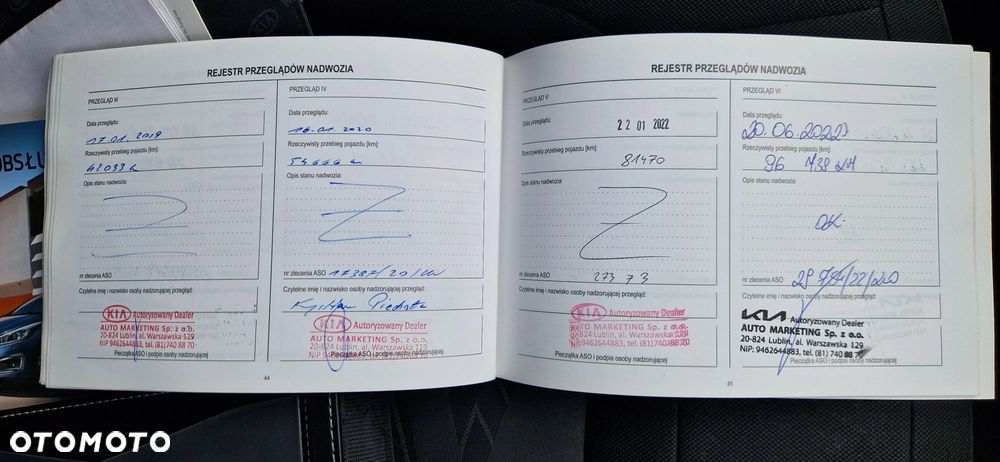 REJESTR PRZEGLĄDÓW NADWOZIA
PRZEGLĄD III
Data przeglądu:
17.01.2019
Rzeczywisty przebieg pojazdu [km]:
Opis stanu nadwozia:
nr zlecenia ASO
Czytelne imię i nazwisko osoby nadzorującej przegląd:
KIA Autoryzowany Dealer
AUTO MARKETING Sp. z o.o.
20-824 Lublin, al. Warszawska 129
NIP: 9462644883, tel. (81) 740 88 70
Pieczątka ASO i podpis osoby nadzorującej
44
PRZEGLĄD IV
Data przeglądu:
16.01.2020
Rzeczywisty przebieg pojazdu [km]:
Opis stanu nadwozia:
nr zlecenia ASO
Czytelne imię i nazwisko osoby nadzorującej przegląd:
KIA Autoryzowany Dealer
AUTO MARKETING Sp. z o.o.
20-824 Lublin, al. Warszawska 129
Pieczątka ASO i podpis osoby nadzorującej
REJESTR PRZEGLĄDÓW NADWOZIA
PRZEGLĄD V
Data przeglądu:
22 01 2022
Rzeczywisty przebieg pojazdu [km]:
81470
Opis stanu nadwozia:
nr zlecenia ASO 27373
Czytelne imię i nazwisko osoby nadzorującej przegląd:
KIA Autoryzowany Dealer
AUTO MARKETING Sp. z o.o.
20-824 Lublin, al. Warszawska 129
NIP: 9462644883, tel. (81) 740 88 70
Pieczątka ASO i podpis osoby nadzorującej
45
PRZEGLĄD VI
Data przeglądu:
20.06.2022
Rzeczywisty przebieg pojazdu [km]:
96 738 km
Opis stanu nadwozia:
OK.
nr zlecenia ASO
Czytelne imię i nazwisko osoby nadzorującej przegląd:
KIA Autoryzowany Dealer
AUTO MARKETING Sp. z o.o.
20-824 Lublin, al. Warszawska 129
NIP: 9462644883, tel. (81) 740 88 70
Pieczątka ASO i podpis osoby nadzorującej
OTOMOTO